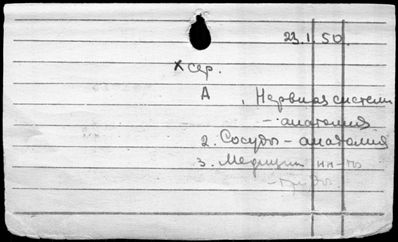 23.1.50.
х сер.
А , Нервная система
- анатомия
2. Сосуды - анатомия
3. Медицин ин-ты
- труды.